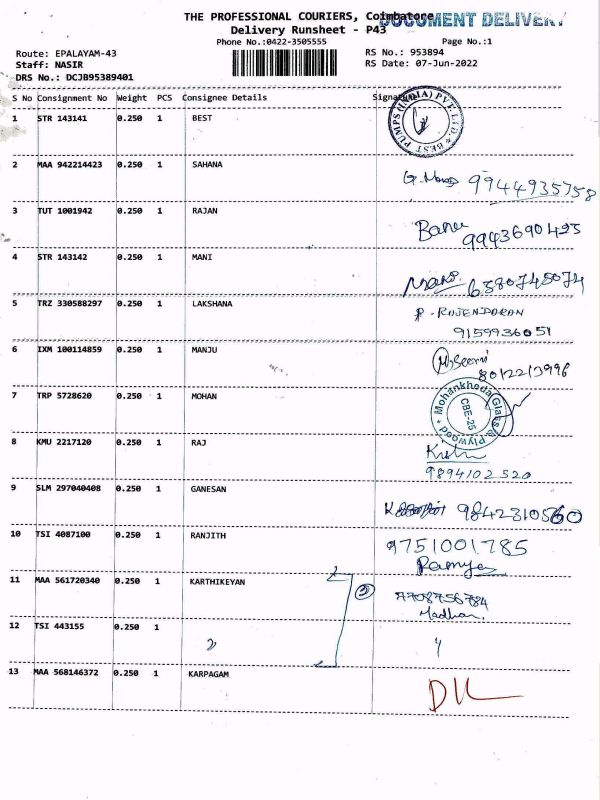 THE PROFESSIONAL COURIERS, Coimbatore
DOCUMENT DELIVERY
Delivery Runsheet - P43
Phone No.:0422-3505555 Page No.:1
Route: EPALAYAM-43 RS No.: 953894
Staff: NASIR RS Date: 07-Jun-2022
DRS No.: DCJB95389401
S No Consignment No Weight PCS Consignee Details Signature
1 STR 143141 0.250 1 BEST
BEST PUMPS (INDIA) PVT. LTD.
2 MAA 942214423 0.250 1 SAHANA
9944935758
3 TUT 1001942 0.250 1 RAJAN
Banu
9943690425
4 STR 143142 0.250 1 MANI
Mani
6380745074
5 TRZ 330588297 0.250 1 LAKSHANA
P. RAJENDARAN
9159936051
6 IXM 100114859 0.250 1 MANJU
7 TRP 5728620 0.250 1 MOHAN
Mohankheda Glass & Plywood
CBE-25
8 KMU 2217120 0.250 1 RAJ
9894102520
9 SLM 297040408 0.250 1 GANESAN
9842310560
10 TSI 4087100 0.250 1 RANJITH
9751001785
Ramya
11 MAA 561720340 0.250 1 KARTHIKEYAN
2
7708756784
Madhan
12 TSI 443155 0.250 1
13 MAA 568146372 0.250 1 KARPAGAM